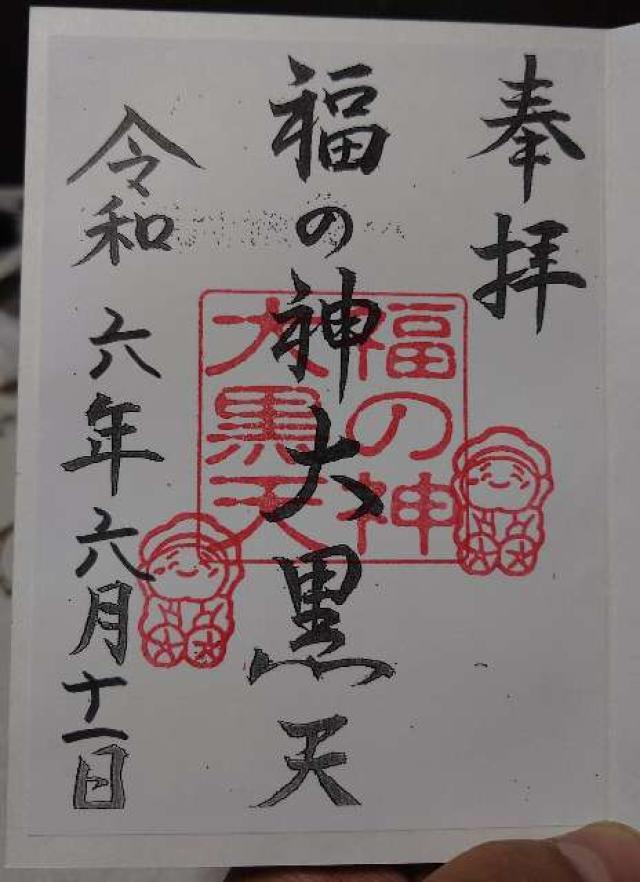 奉拝
福の神大黒天
福の神
大黒天
令和六年六月十一日